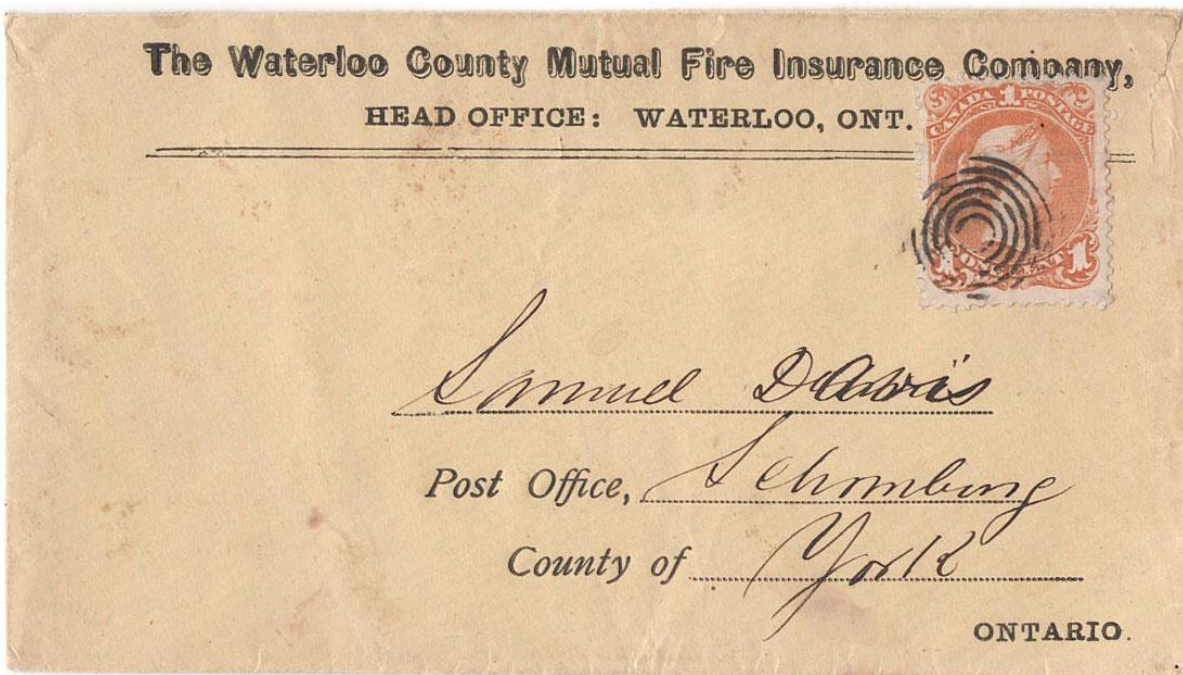 The Waterloo County Mutual Fire Insurance Company,
HEAD OFFICE: WATERLOO, ONT.
CANADA 1 POSTAGE
1 ONE CENT 1
Samuel Davis
Post Office, Schomberg
County of York
ONTARIO.